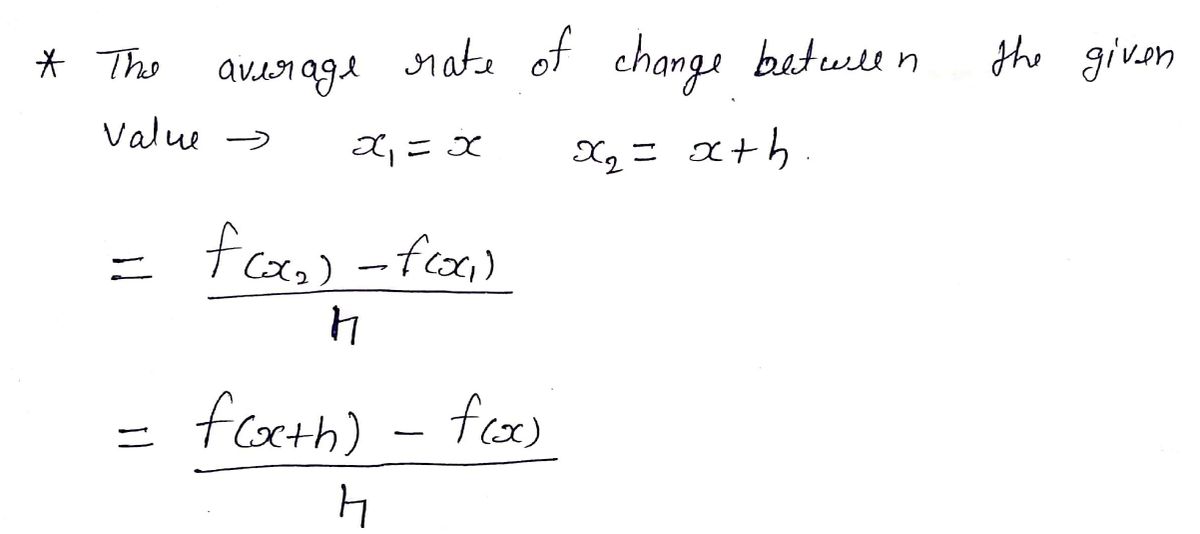 * The average rate of change between the given
value → x₁ = x x₂ = x+h.
= f(x₂) - f(x₁)
h
= f(x+h) - f(x)
h